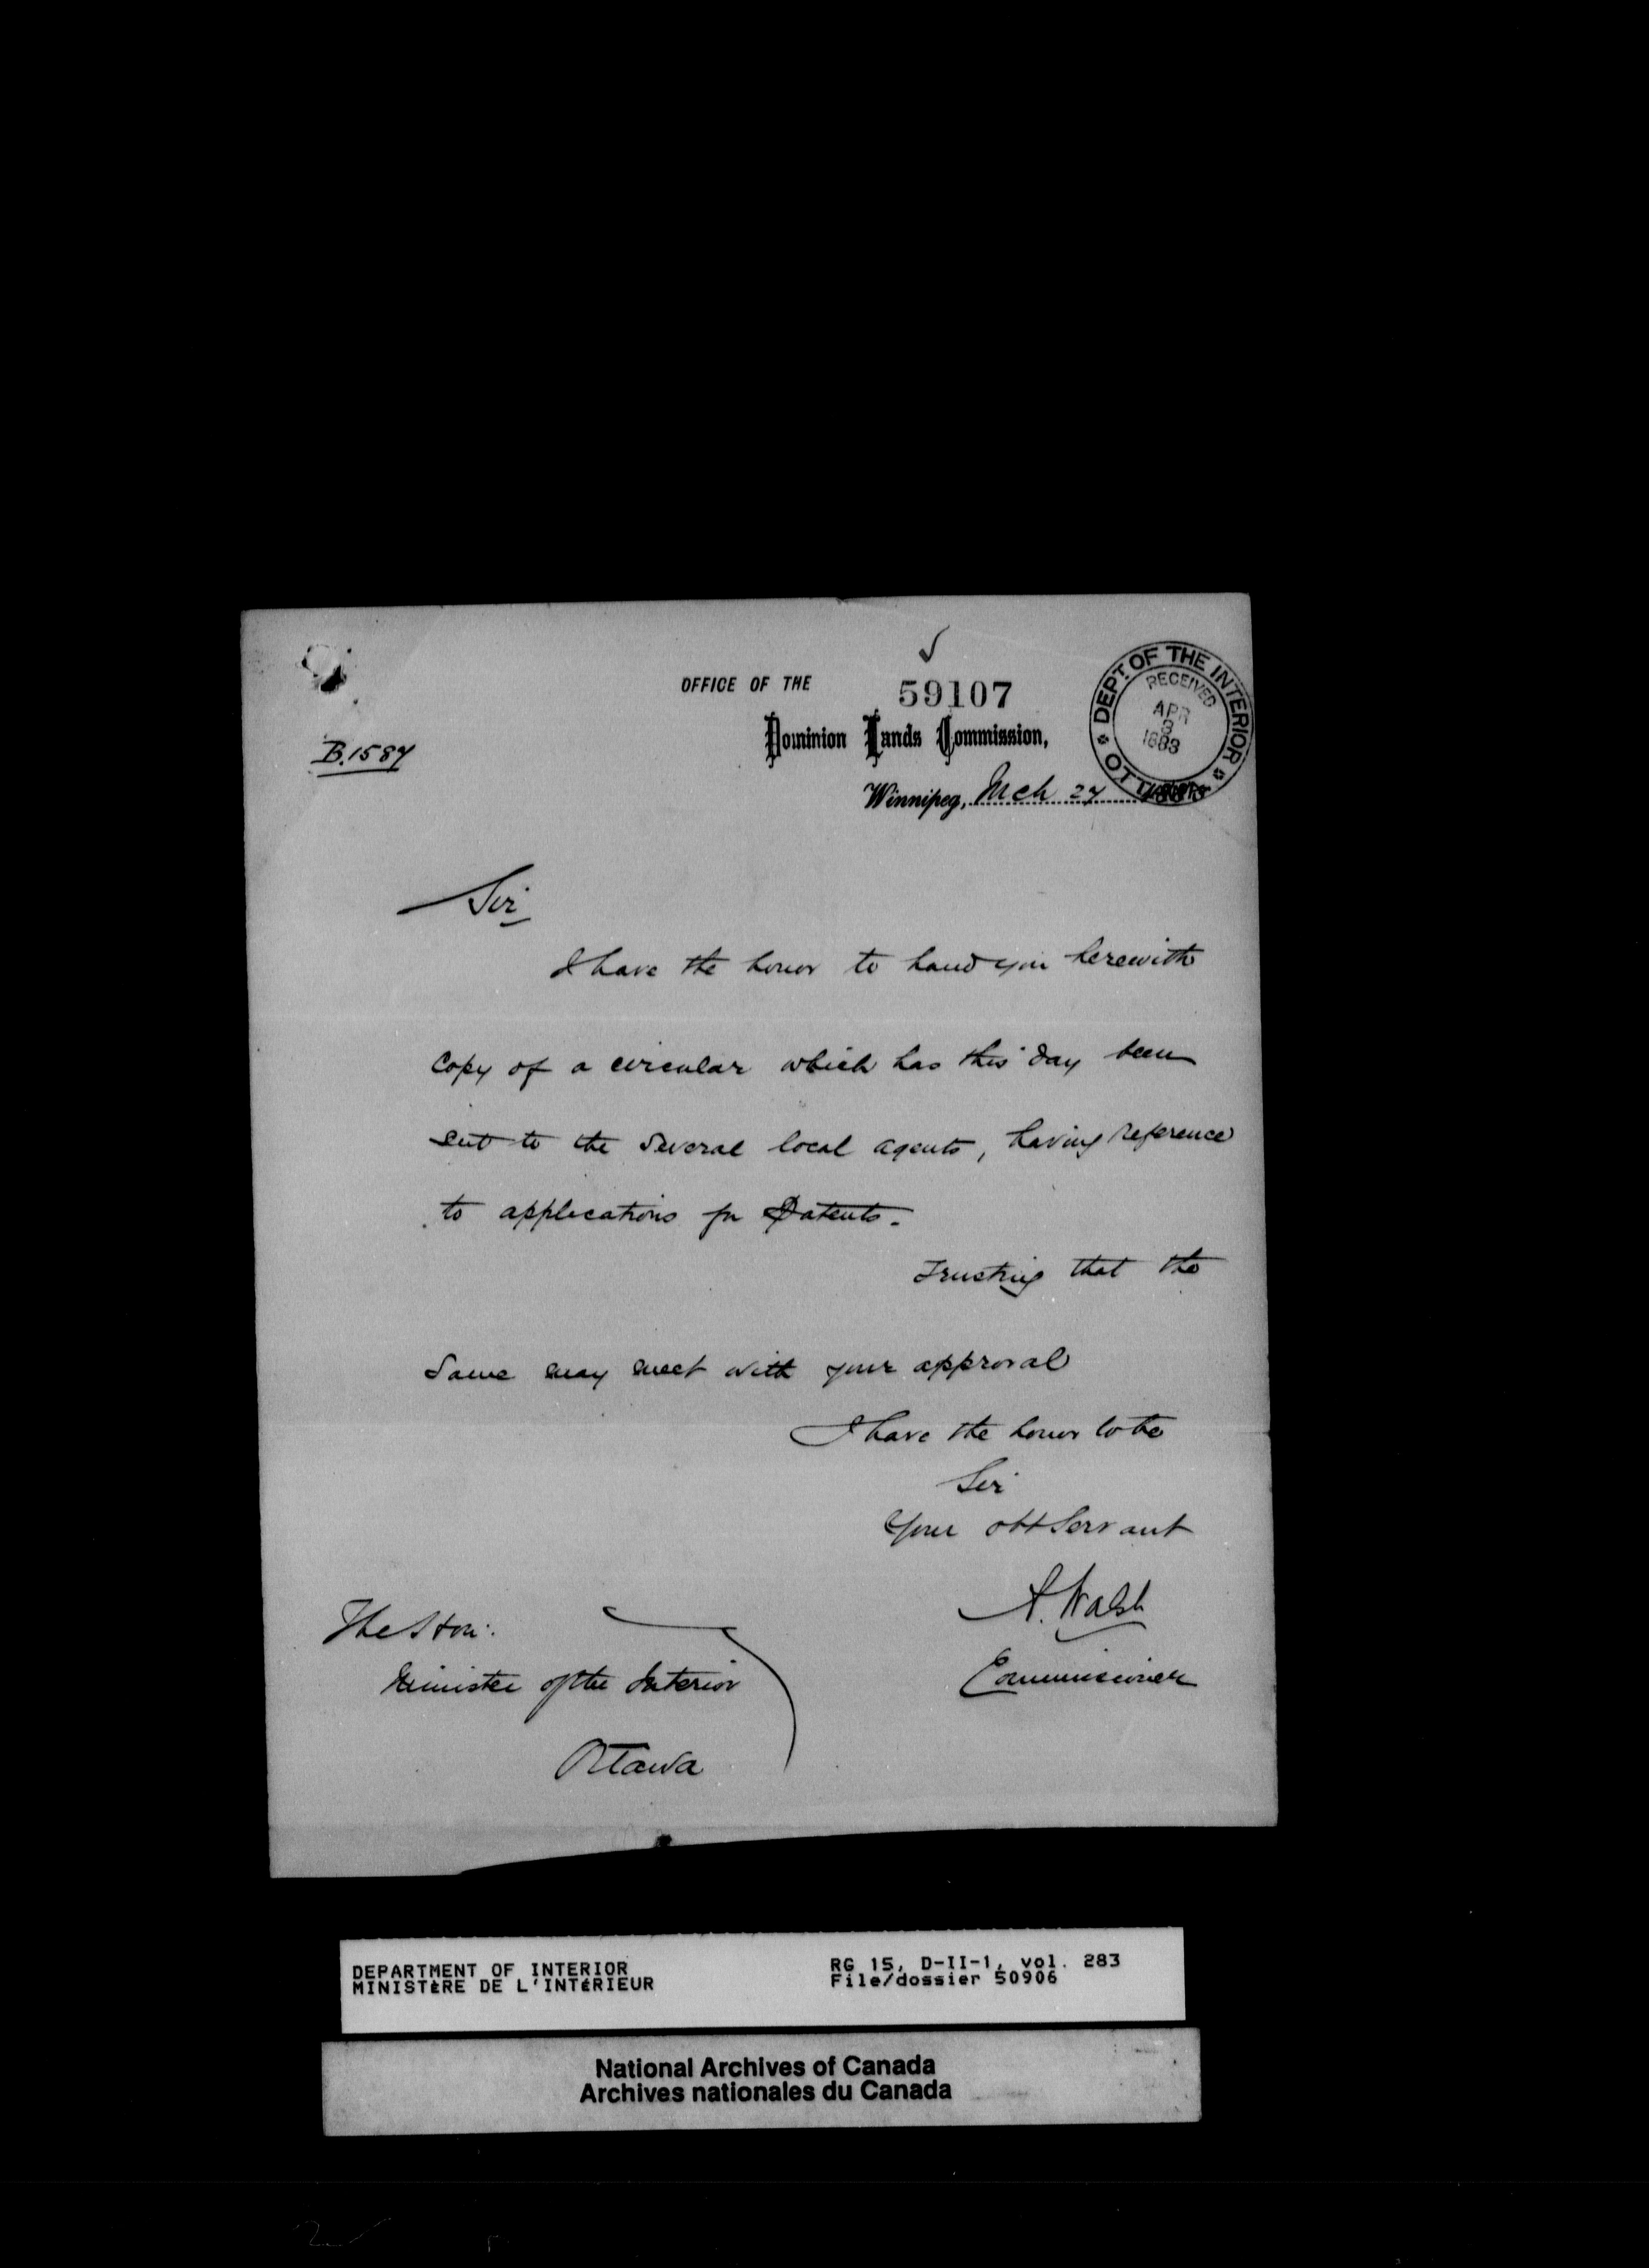 ✓
OFFICE OF THE
59107
Dominion Lands Commission,
B.1587
Winnipeg, Mch 27 1883
DEPT. OF THE INTERIOR
OTTAWA
RECEIVED
APR
3
1883
Sir
I have the honor to hand you herewith
Copy of a circular which has this day been
sent to the several local agents, having reference
to applications for Patents.
Trusting that the
Same may meet with your approval
I have the honor to be
Sir
Your obt Servant
A. Walsh
Commissioner
The Hon:
Minister of the Interior
Ottawa
DEPARTMENT OF INTERIOR
MINISTÈRE DE L'INTÉRIEUR
RG 15, D-II-1, vol. 283
File/dossier 50906
National Archives of Canada
Archives nationales du Canada